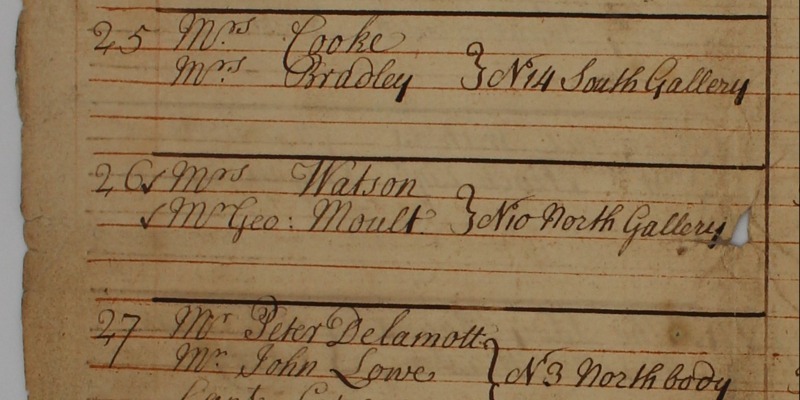 25 Mrs Cooke
Mrs Bradley } N14 South Gallery
26 Mrs Watson
Mr Geo: Moult } N10 North Gallery
27 Mr Peter Delamott
Mr John Lowe } N3 North body